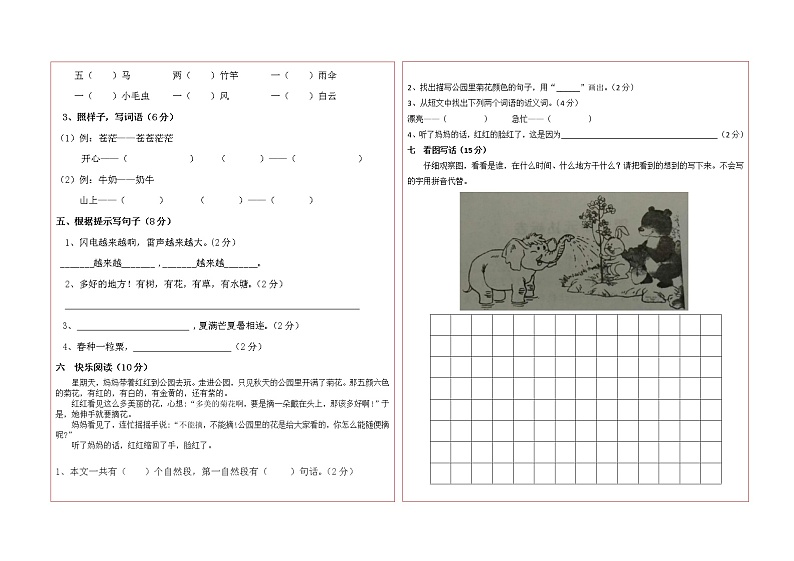 五（　　）马　　　　两（　　）竹竿　　　一（　　）雨伞
一（　　）小毛虫　　一（　　）风　　　　一（　　）白云
3、照样子，写词语（6分）
（1）例：苍茫——苍苍茫茫
开心——（　　　　　）　（　　　）——（　　　　　）
（2）例：牛奶——奶牛
山上——（　　　）　　（　　　）——（　　　）
五、根据提示写句子（8分）
1、闪电越来越响，雷声越来越大。（2分）
_______越来越_______，_______越来越_______。
2、多好的地方！有树，有花，有草，有水塘。（2分）
3、_______________________，夏满芒夏暑相连。（2分）
4、春种一粒粟，____________________（2分）
六　快乐阅读（10分）
星期天，妈妈带着红红到公园去玩。走进公园，只见秋天的公园里开满了菊花。那五颜六色
的菊花，有红的，有白的，有金黄的，还有紫的。
红红看见这么多美丽的花，心想：“多美的菊花啊，要是摘一朵戴在头上，那该多好啊！”于
是，她伸手就要摘花。
妈妈看见了，连忙摇摇手说：“不能摘，不能摘！公园里的花是给大家看的，你怎么能随便摘
呢？”
听了妈妈的话，红红缩回了手，脸红了。
1、本文一共有（　　）个自然段，第一自然段有（　　）句话。（2分）
2、找出描写公园里菊花颜色的句子，用“______”画出。（2分）
3、从短文中找出下列两个词语的近义词。（4分）
漂亮——（　　　　）　　急忙——（　　　　）
4、听了妈妈的话，红红的脸红了，这是因为________________________________________（2分）
七　看图写话（15分）
仔细观察图，看看是谁，在什么时间、什么地方干什么？请把看到的想到的写下来。不会写
的字用拼音代替。